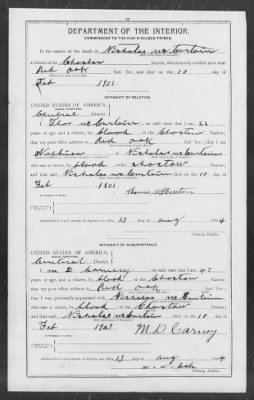 DEPARTMENT OF THE INTERIOR.
COMMISSION TO THE FIVE CIVILIZED TRIBES.
In the matter of the death of Nicholas McCurtain
a citizen of the Choctaw Nation, who formerly resided at or near
Red Oak, Ind. Ter., and died on the 10 day of
Feb 1901
AFFIDAVIT OF RELATIVE.
UNITED STATES OF AMERICA,
Central District.
I, Thos McCurtain, on oath state that I am
years of age and a citizen, by blood of the Choctaw Nation;
that my post office address is Red Oak, Ind. Ter.; that I am
of Nicholas McCurtain
who was a citizen, by blood of the Choctaw Nation,
and that said Nicholas McCurtain died on the 10 day of
Feb 1901
Subscribed and sworn to before me this 13 day of Aug 1904
Notary Public.
AFFIDAVIT OF ACQUAINTANCE.
UNITED STATES OF AMERICA,
Central District.
I, M D Carney, on oath state that I am 42
years of age, and a citizen by blood of the Choctaw Nation;
that my post office address is Red Oak, Ind. Ter.;
that I was personally acquainted with Nicholas McCurtain
who was a citizen, by blood of the Choctaw Nation,
and that said Nicholas McCurtain died on the 10 day of
Feb
M. D. Carney
Subscribed and sworn to before me this 13 day of Aug 1904
Notary Public.